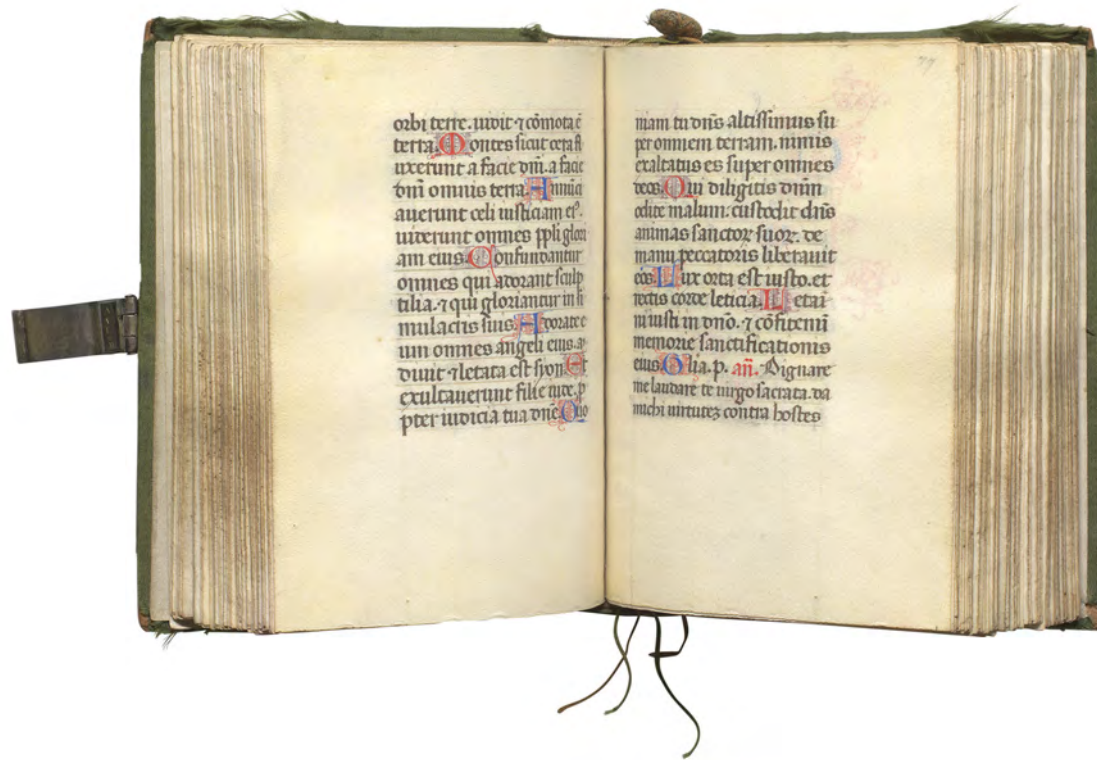 orbi terre. uidit ⁊ cōmota ē
terra. Montes sicut cera fl
uxerunt a facie dn̄i. a facie
dn̄i omnis terra. Annūci
auerunt celi iusticiam eiꝰ.
uiderunt omnes pp̄li glori
am eius. Confundantur
omnes qui adorant sculp
tilia. ⁊ qui gloriantur in si
mulacris suis. Adorate e
um omnes angeli eius. a
diuit ⁊ letata est syon. Et
exultauerunt filie iude. p
pter iudicia tua dn̄e. Quo
77
niam tu dn̄s altissimus su
per omnem terram. nimis
exaltatus es super omnes
deos. Qui diligitis dn̄m
odite malum. custodit dn̄s
animas sanctoꝝ suoꝝ. de
manu peccatoris liberauit
eos. Lux orta est iusto. et
rectis corde leticia. Letami
ni iusti in dn̄o. ⁊ cōfitemī
memorie sanctificationis
eius. Glia. p. an̄. Dignare
me laudare te uirgo sacrata. da
michi uirtutez contra hostes